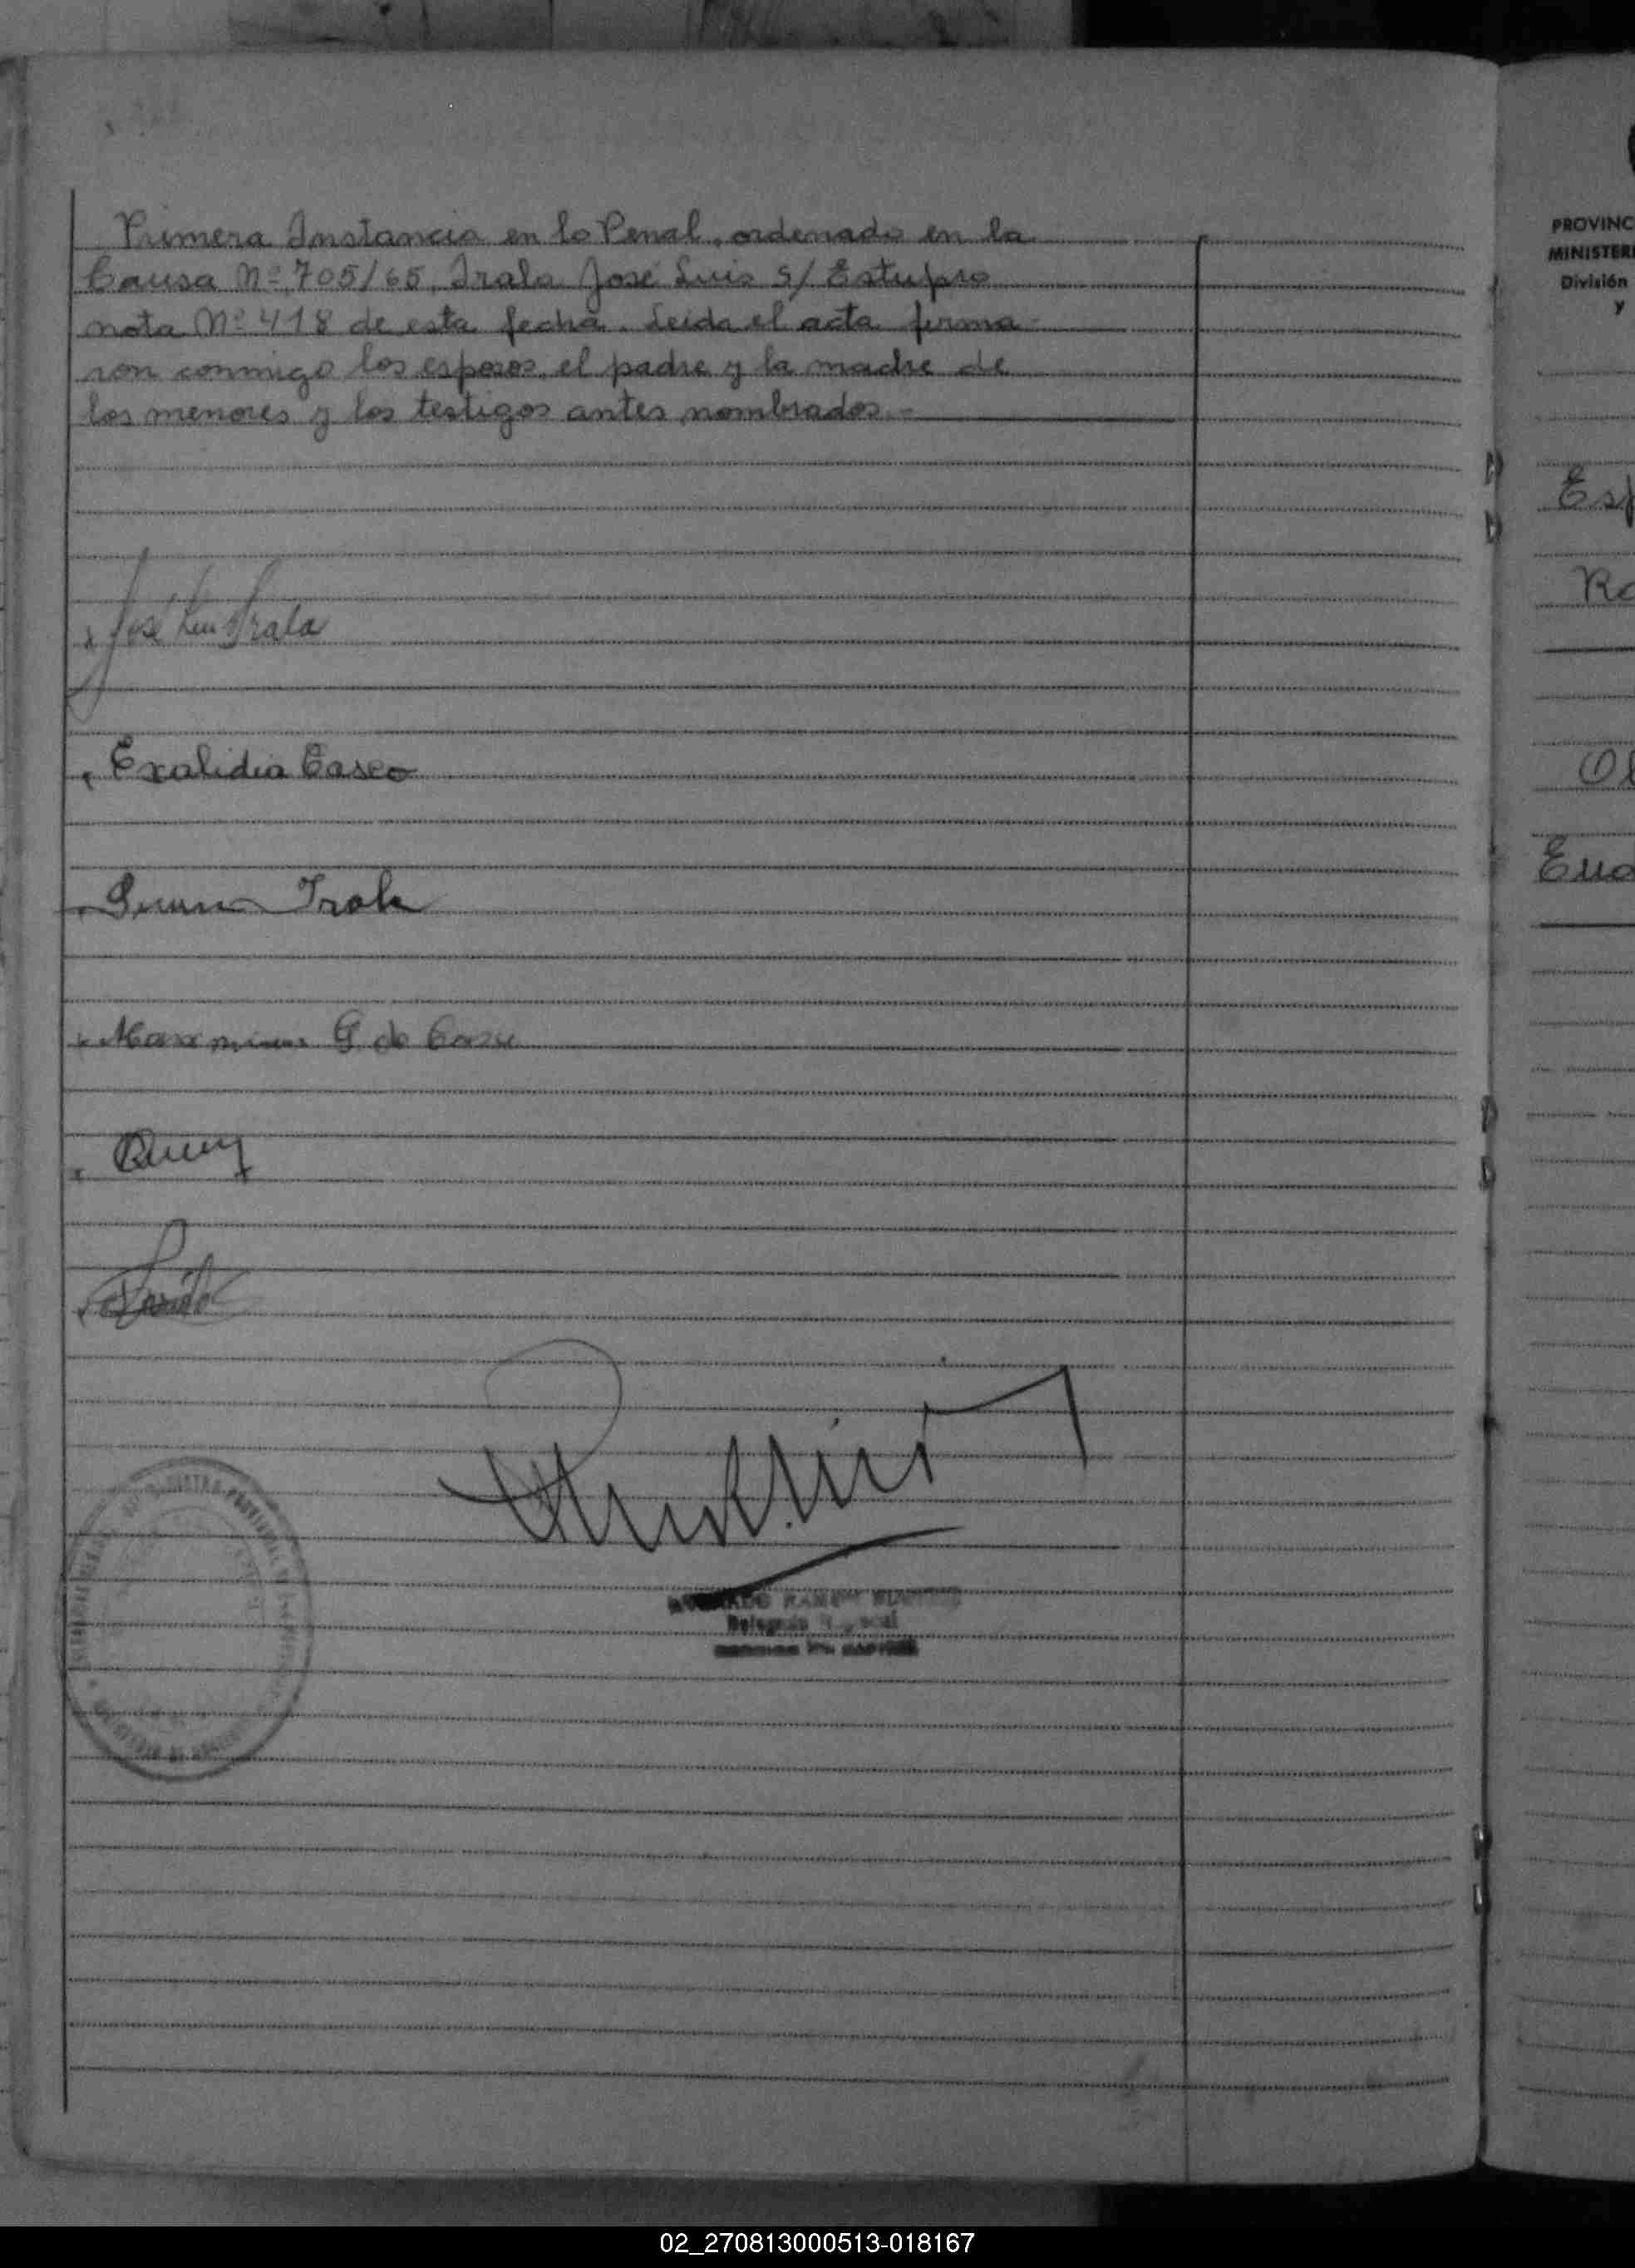 Primera Instancia en lo Penal, ordenado en la
Causa Nº 705/65, Irala José Luis S/ Estupro
nota Nº 418 de esta fecha. Leida el acta firma-
ron conmigo los esposos, el padre y la madre de
los menores y los testigos antes nombrados.-
José Luis Irala
Exalidia Casco
Irala
G. de
RAMON
Delegado
PROVINC
MINISTER
División
y
Esp
Ro
Ol
Eud
02_270813000513-018167